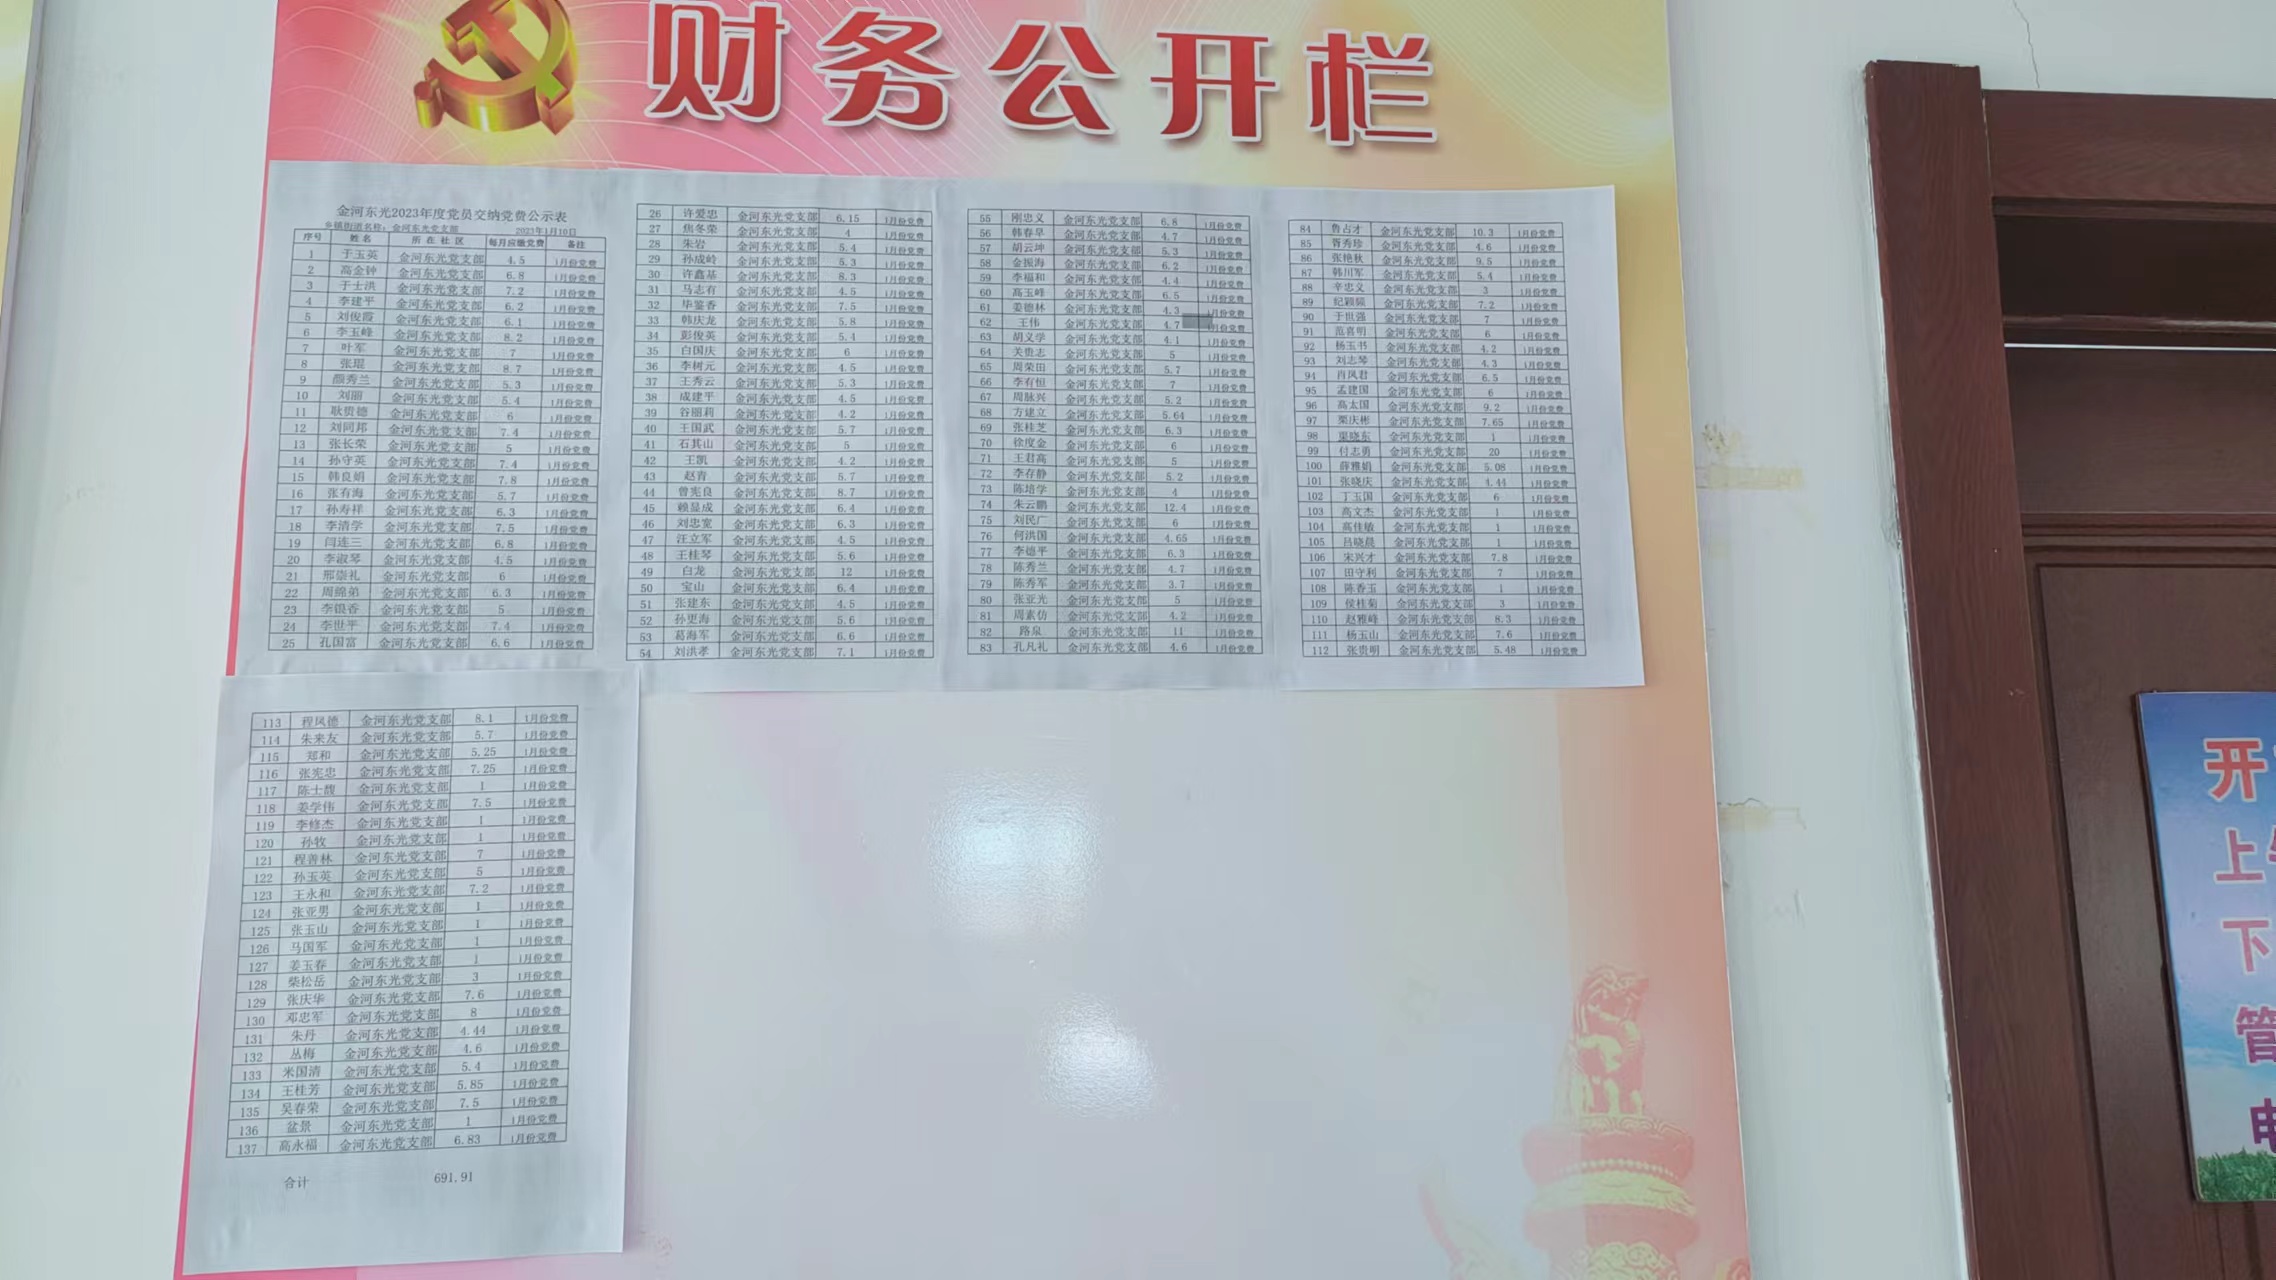 财务公开栏
金河东光2023年度党员交纳党费公示表
乡镇街道名称：金河东光党支部 2023年1月10日
序号 姓名 所在社区 每月应缴党费 备注
1 于玉英 金河东光党支部 4.5 1月份党费
2 高金钟 金河东光党支部 6.8 1月份党费
3 于士洪 金河东光党支部 7.2 1月份党费
4 李建平 金河东光党支部 6.2 1月份党费
5 刘俊霞 金河东光党支部 6.1 1月份党费
6 李玉峰 金河东光党支部 8.2 1月份党费
7 叶军 金河东光党支部 7 1月份党费
8 张琨 金河东光党支部 8.7 1月份党费
9 颜秀兰 金河东光党支部 5.3 1月份党费
10 刘丽 金河东光党支部 5.4 1月份党费
11 耿贵德 金河东光党支部 6 1月份党费
12 刘同邦 金河东光党支部 7.4 1月份党费
13 张长荣 金河东光党支部 5 1月份党费
14 孙守英 金河东光党支部 7.4 1月份党费
15 韩良娟 金河东光党支部 7.8 1月份党费
16 张有海 金河东光党支部 5.7 1月份党费
17 孙寿祥 金河东光党支部 6.3 1月份党费
18 李清学 金河东光党支部 7.5 1月份党费
19 闫连三 金河东光党支部 6.8 1月份党费
20 李淑琴 金河东光党支部 4.5 1月份党费
21 邢崇礼 金河东光党支部 6 1月份党费
22 周锦弟 金河东光党支部 6.3 1月份党费
23 李银香 金河东光党支部 5 1月份党费
24 李世平 金河东光党支部 7.4 1月份党费
25 孔国富 金河东光党支部 6.6 1月份党费
26 许爱忠 金河东光党支部 6.15 1月份党费
27 焦冬荣 金河东光党支部 4 1月份党费
28 朱岩 金河东光党支部 5.4 1月份党费
29 孙成岭 金河东光党支部 5.3 1月份党费
30 许鑫基 金河东光党支部 8.3 1月份党费
31 马志有 金河东光党支部 4.5 1月份党费
32 毕鉴香 金河东光党支部 7.5 1月份党费
33 韩庆龙 金河东光党支部 5.8 1月份党费
34 彭俊英 金河东光党支部 5.4 1月份党费
35 白国庆 金河东光党支部 6 1月份党费
36 李树元 金河东光党支部 4.5 1月份党费
37 王秀云 金河东光党支部 5.3 1月份党费
38 成建平 金河东光党支部 4.5 1月份党费
39 谷丽莉 金河东光党支部 4.2 1月份党费
40 王国武 金河东光党支部 5.7 1月份党费
41 石其山 金河东光党支部 5 1月份党费
42 王凯 金河东光党支部 4.2 1月份党费
43 赵青 金河东光党支部 5.7 1月份党费
44 曾宪良 金河东光党支部 8.7 1月份党费
45 赖显成 金河东光党支部 6.4 1月份党费
46 刘忠宽 金河东光党支部 6.3 1月份党费
47 汪立军 金河东光党支部 4.5 1月份党费
48 王桂琴 金河东光党支部 5.6 1月份党费
49 白龙 金河东光党支部 12 1月份党费
50 宝山 金河东光党支部 6.4 1月份党费
51 张建东 金河东光党支部 4.5 1月份党费
52 孙更海 金河东光党支部 5.6 1月份党费
53 葛海军 金河东光党支部 6.6 1月份党费
54 刘洪孝 金河东光党支部 7.1 1月份党费
55 刚忠义 金河东光党支部 6.8 1月份党费
56 韩春早 金河东光党支部 4.7 1月份党费
57 胡云坤 金河东光党支部 5.3 1月份党费
58 金振海 金河东光党支部 6.2 1月份党费
59 李福和 金河东光党支部 4.4 1月份党费
60 高玉峰 金河东光党支部 6.5 1月份党费
61 姜德林 金河东光党支部 4.3 1月份党费
62 王伟 金河东光党支部 4.7 1月份党费
63 胡义学 金河东光党支部 4.1 1月份党费
64 关贵志 金河东光党支部 5 1月份党费
65 周荣田 金河东光党支部 5.7 1月份党费
66 李有恒 金河东光党支部 7 1月份党费
67 周脉兴 金河东光党支部 5.2 1月份党费
68 方建立 金河东光党支部 5.64 1月份党费
69 张桂芝 金河东光党支部 6.3 1月份党费
70 徐度金 金河东光党支部 6 1月份党费
71 王君高 金河东光党支部 5 1月份党费
72 李存静 金河东光党支部 5.2 1月份党费
73 陈培学 金河东光党支部 4 1月份党费
74 朱云鹏 金河东光党支部 12.4 1月份党费
75 刘民广 金河东光党支部 6 1月份党费
76 何洪国 金河东光党支部 4.65 1月份党费
77 李德平 金河东光党支部 6.3 1月份党费
78 陈秀兰 金河东光党支部 4.7 1月份党费
79 陈秀军 金河东光党支部 3.7 1月份党费
80 张亚光 金河东光党支部 5 1月份党费
81 周素仿 金河东光党支部 4.2 1月份党费
82 路泉 金河东光党支部 11 1月份党费
83 孔凡礼 金河东光党支部 4.6 1月份党费
84 鲁占才 金河东光党支部 10.3 1月份党费
85 胥秀珍 金河东光党支部 4.6 1月份党费
86 张艳秋 金河东光党支部 9.5 1月份党费
87 韩川军 金河东光党支部 5.4 1月份党费
88 辛忠义 金河东光党支部 3 1月份党费
89 纪颖频 金河东光党支部 7.2 1月份党费
90 于世强 金河东光党支部 7 1月份党费
91 范喜明 金河东光党支部 6 1月份党费
92 杨玉书 金河东光党支部 4.2 1月份党费
93 刘志琴 金河东光党支部 4.3 1月份党费
94 肖凤君 金河东光党支部 6.5 1月份党费
95 孟建国 金河东光党支部 6 1月份党费
96 高太国 金河东光党支部 9.2 1月份党费
97 栗庆彬 金河东光党支部 7.65 1月份党费
98 渠晓东 金河东光党支部 1 1月份党费
99 付志勇 金河东光党支部 20 1月份党费
100 薛雅娟 金河东光党支部 5.08 1月份党费
101 张晓庆 金河东光党支部 4.44 1月份党费
102 丁玉国 金河东光党支部 6 1月份党费
103 高文杰 金河东光党支部 1 1月份党费
104 高佳敏 金河东光党支部 1 1月份党费
105 吕晓晨 金河东光党支部 1 1月份党费
106 宋兴才 金河东光党支部 7.8 1月份党费
107 田守利 金河东光党支部 7 1月份党费
108 陈香玉 金河东光党支部 1 1月份党费
109 侯桂菊 金河东光党支部 3 1月份党费
110 赵雅峰 金河东光党支部 8.3 1月份党费
111 杨玉山 金河东光党支部 7.6 1月份党费
112 张贵明 金河东光党支部 5.48 1月份党费
113 程凤德 金河东光党支部 8.1 1月份党费
114 朱来友 金河东光党支部 5.7 1月份党费
115 郑和 金河东光党支部 5.25 1月份党费
116 张宪忠 金河东光党支部 7.25 1月份党费
117 陈士馥 金河东光党支部 1 1月份党费
118 姜学伟 金河东光党支部 7.5 1月份党费
119 李修杰 金河东光党支部 1 1月份党费
120 孙牧 金河东光党支部 1 1月份党费
121 程善林 金河东光党支部 7 1月份党费
122 孙玉英 金河东光党支部 5 1月份党费
123 王永和 金河东光党支部 7.2 1月份党费
124 张亚男 金河东光党支部 1 1月份党费
125 张玉山 金河东光党支部 1 1月份党费
126 马国军 金河东光党支部 1 1月份党费
127 姜玉春 金河东光党支部 1 1月份党费
128 柴松岳 金河东光党支部 3 1月份党费
129 张庆华 金河东光党支部 7.6 1月份党费
130 邓忠军 金河东光党支部 8 1月份党费
131 朱丹 金河东光党支部 4.44 1月份党费
132 丛梅 金河东光党支部 4.6 1月份党费
133 米国清 金河东光党支部 5.4 1月份党费
134 王桂芳 金河东光党支部 5.85 1月份党费
135 吴春荣 金河东光党支部 7.5 1月份党费
136 盆景 金河东光党支部 1 1月份党费
137 高永福 金河东光党支部 6.83 1月份党费
合计 691.91
开
上
下
管